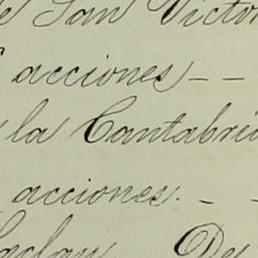 e San Victor
acciones - -
la Cantabri
acciones. - -
De